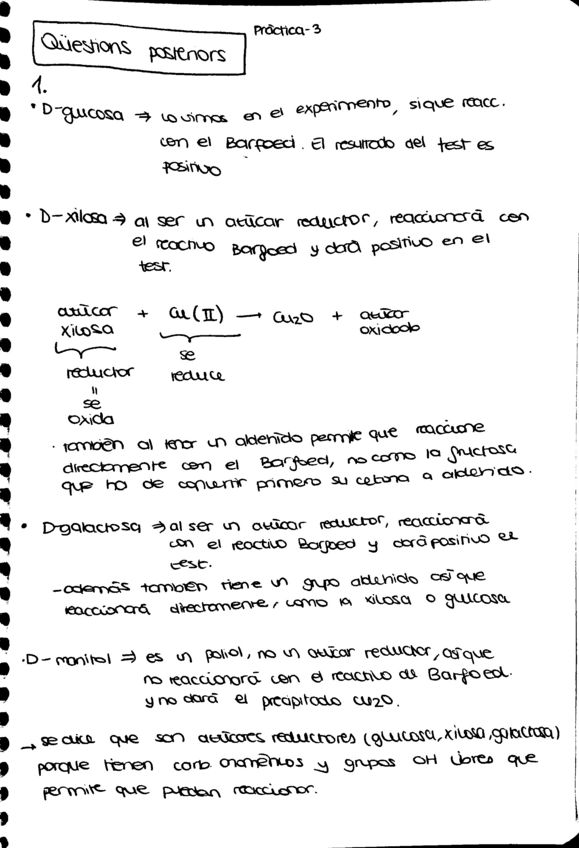 Pràctica-3
Qüestions posteriors
1.
• D-glucosa ⇒ lo vimos en el experimento, si que reacc.
con el Barfoed. El resultado del test es
positivo
• D-xilosa ⇒ al ser un azúcar reductor, reaccionará con
el reactivo Barfoed y dará positivo en el
test.
azúcar + Cu(II) → Cu2O + azúcar
xilosa oxidado
reductor se
= reduce
se
oxida
· también al tener un aldehido permite que reaccione
directamente con el Barfoed, no como la fructosa
que ha de convertir primero su cetona a aldehido.
• D-galactosa ⇒ al ser un azúcar reductor, reaccionará
con el reactivo Barfoed y dará positivo el
test.
- además también tiene un grupo aldehido así que
reaccionará directamente, como la xilosa o glucosa
· D-manitol ⇒ es un poliol, no un azúcar reductor, así que
no reaccionará con el reactivo de Barfoed.
y no dará el precipitado Cu2O.
→ se dice que son azúcares reductores (glucosa, xilosa, galactosa)
porque tienen carb. anoméricos y grupos OH libres que
permite que puedan reaccionar.